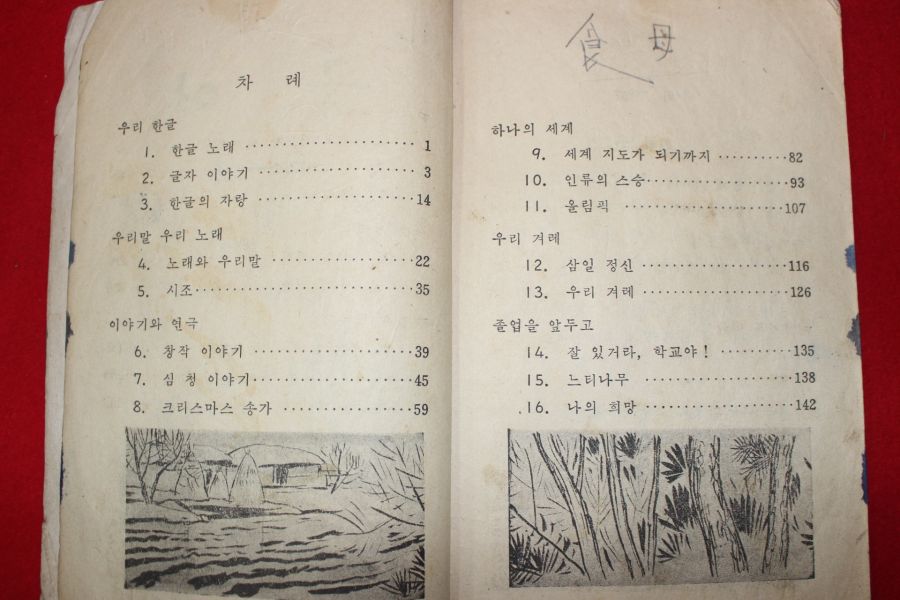 차 례
우리 한글
1. 한글 노래 ·················· 1
2. 글자 이야기 ·················· 3
3. 한글의 자랑 ·················· 14
우리말 우리 노래
4. 노래와 우리말 ·················· 22
5. 시조 ·················· 35
이야기와 연극
6. 창작 이야기 ·················· 39
7. 심 청 이야기 ·················· 45
8. 크리스마스 송가 ·················· 59
食 母
하나의 세계
9. 세계 지도가 되기까지 ·········· 82
10. 인류의 스승 ·················· 93
11. 올림픽 ·················· 107
우리 겨레
12. 삼일 정신 ·················· 116
13. 우리 겨레 ·················· 126
졸업을 앞두고
14. 잘 있거라, 학교야! ········· 135
15. 느티나무 ·················· 138
16. 나의 희망 ·················· 142